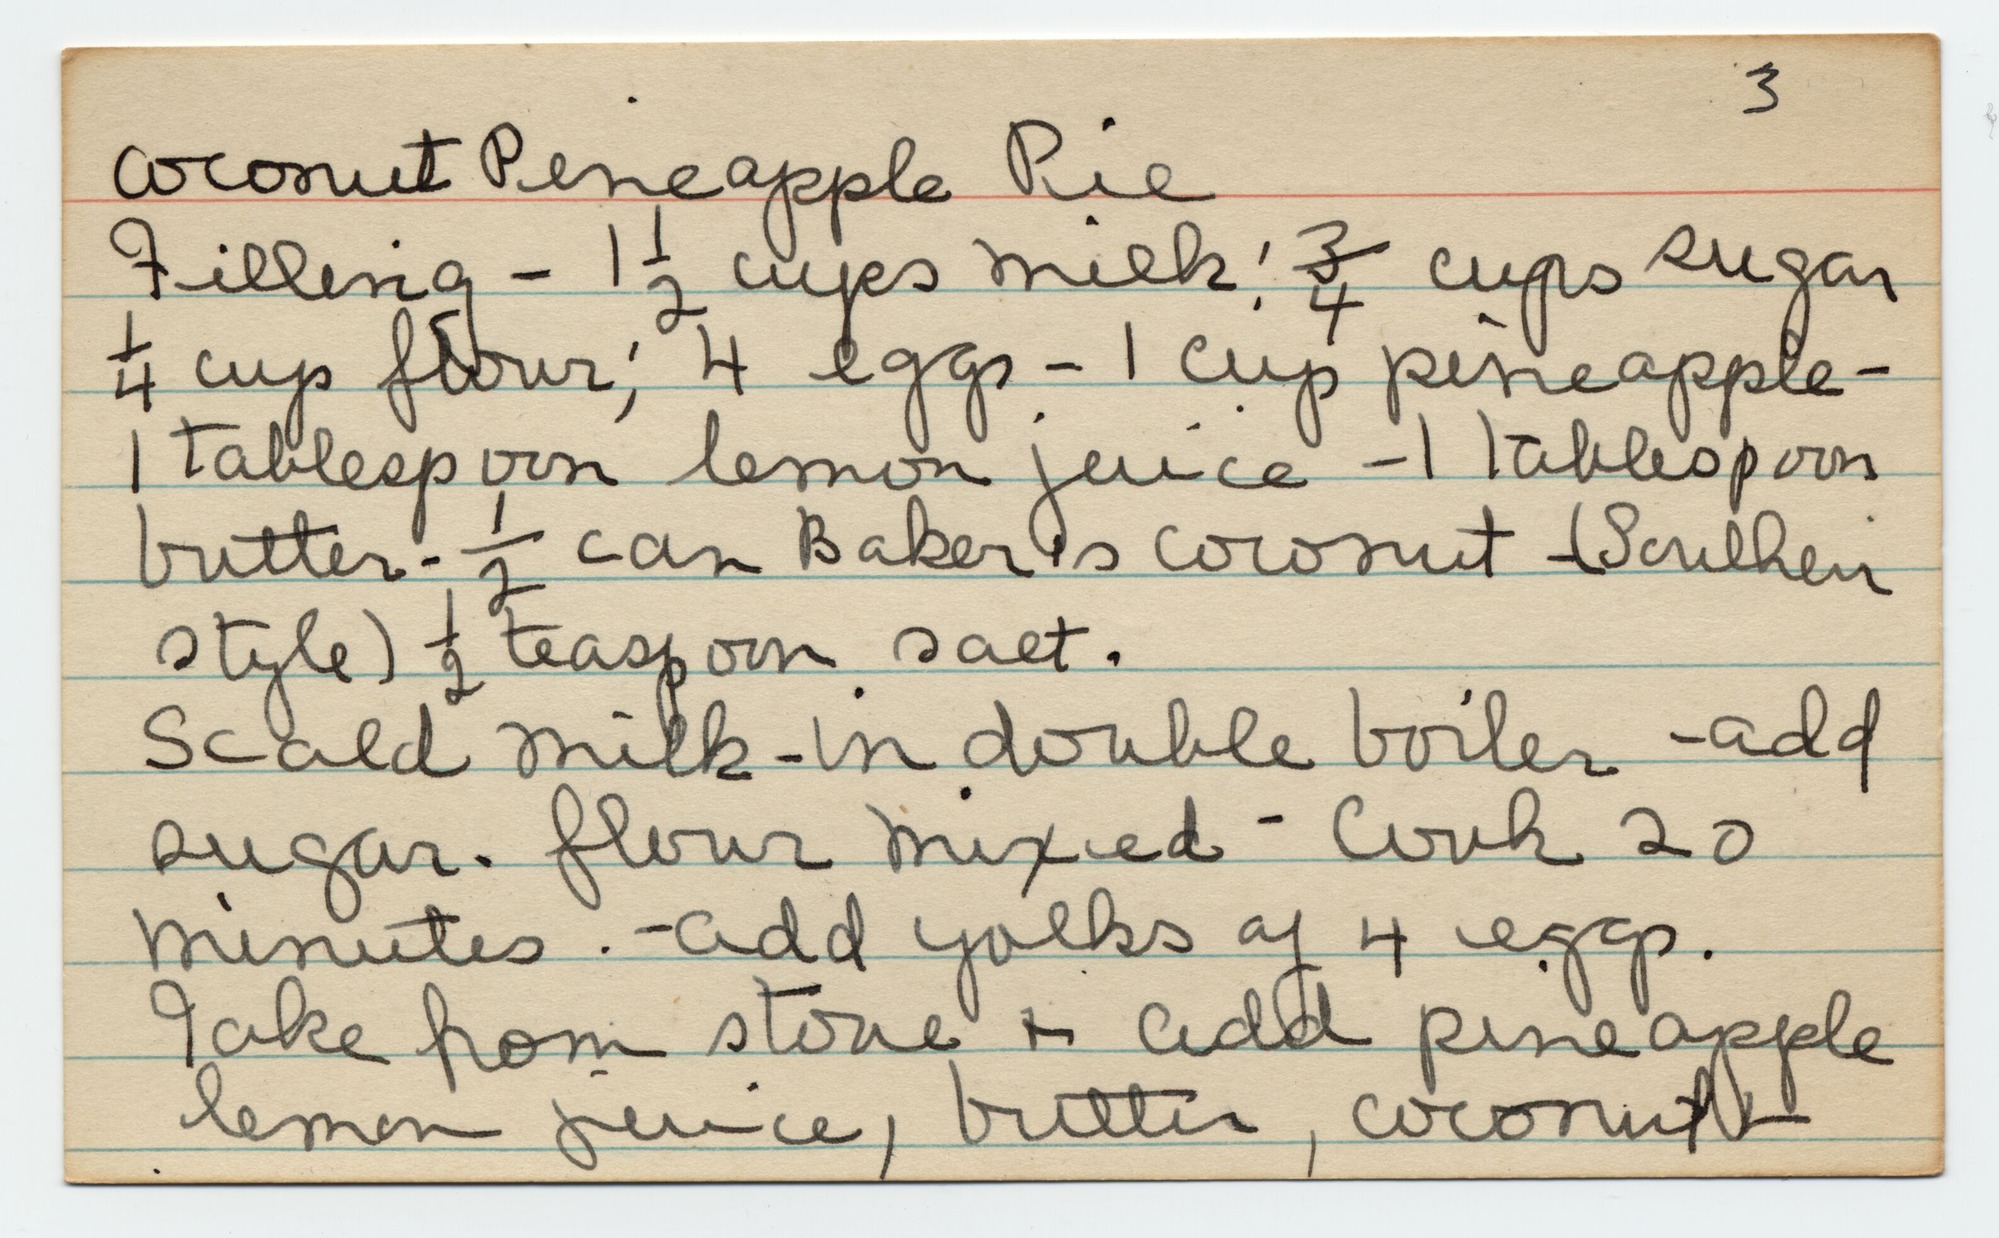 3
Coconut Pineapple Pie
Filling - 1 1/2 cups milk; 3/4 cups sugar
1/4 cup flour; 4 eggs - 1 cup pineapple -
1 tablespoon lemon juice - 1 tablespoon
butter - 1/2 can Baker's coconut - (Southern
style) 1/2 teaspoon salt.
Scald milk - in double boiler - add
sugar. flour mixed - Cook 20
minutes. - add yolks of 4 eggs.
Take from stove + add pineapple
lemon juice, butter, coconut +